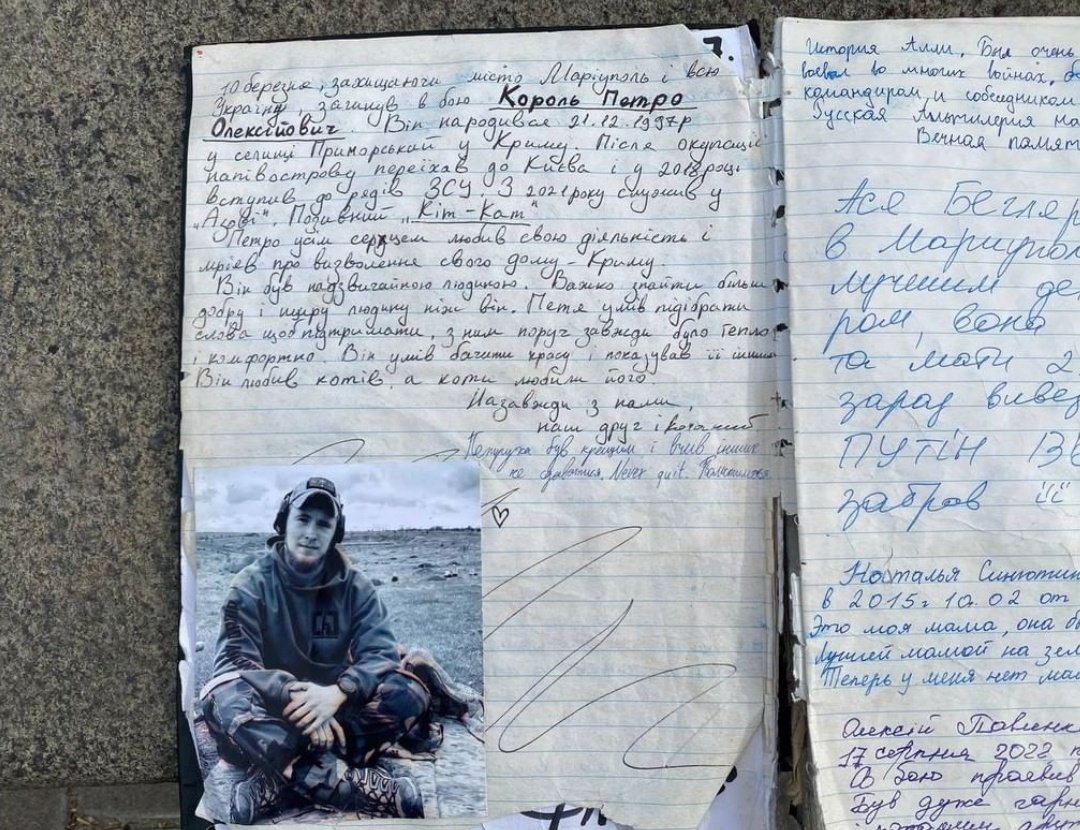 7.
10 березня, захищаючи місто Маріуполь і всю
Україну, загинув в бою Король Петро
Олексійович. Він народився 21.12.1997р
у селищі Приморський у Криму. Після окупації
півострову переїхав до Києва і у 2018 році
вступив до рядів ЗСУ. З 2021 року служив у
"Азові". Позивний "Кіт-Кат"
Петро усім серцем любив свою діяльність і
мріяв про визволення свого дому - Криму.
Він був надзвичайною людиною. Важко знайти більш
добру і щиру людину ніж він. Петя умів підібрати
слова щоб підтримати, з ним поруч завжди було тепло
і комфортно. Він умів бачити красу і показував її іншим
Він любив котів, а коти любили його.
Назавжди з нами,
наш друг і коханий
Петруха був кращим і вчив інших
не здаватися. Never quit.
История Аллы. Был очень
воевал во многих войнах,
командиром и собеседником
Русская Артиллерия на
Вечная памят
Ася Бегляр
в Мариупол
лучшим де
ром, вона
та мати 2
зараз вивез
ПУТІН ІЗ
забрав її
Наталья Синютки
в 2015г 10.02 от
Это моя мама, она б
Лучшей мамой на зем
Теперь у меня нет ма
Олексій Павленк
17 серпня 2022
В бою проявив
Був дуже гарн